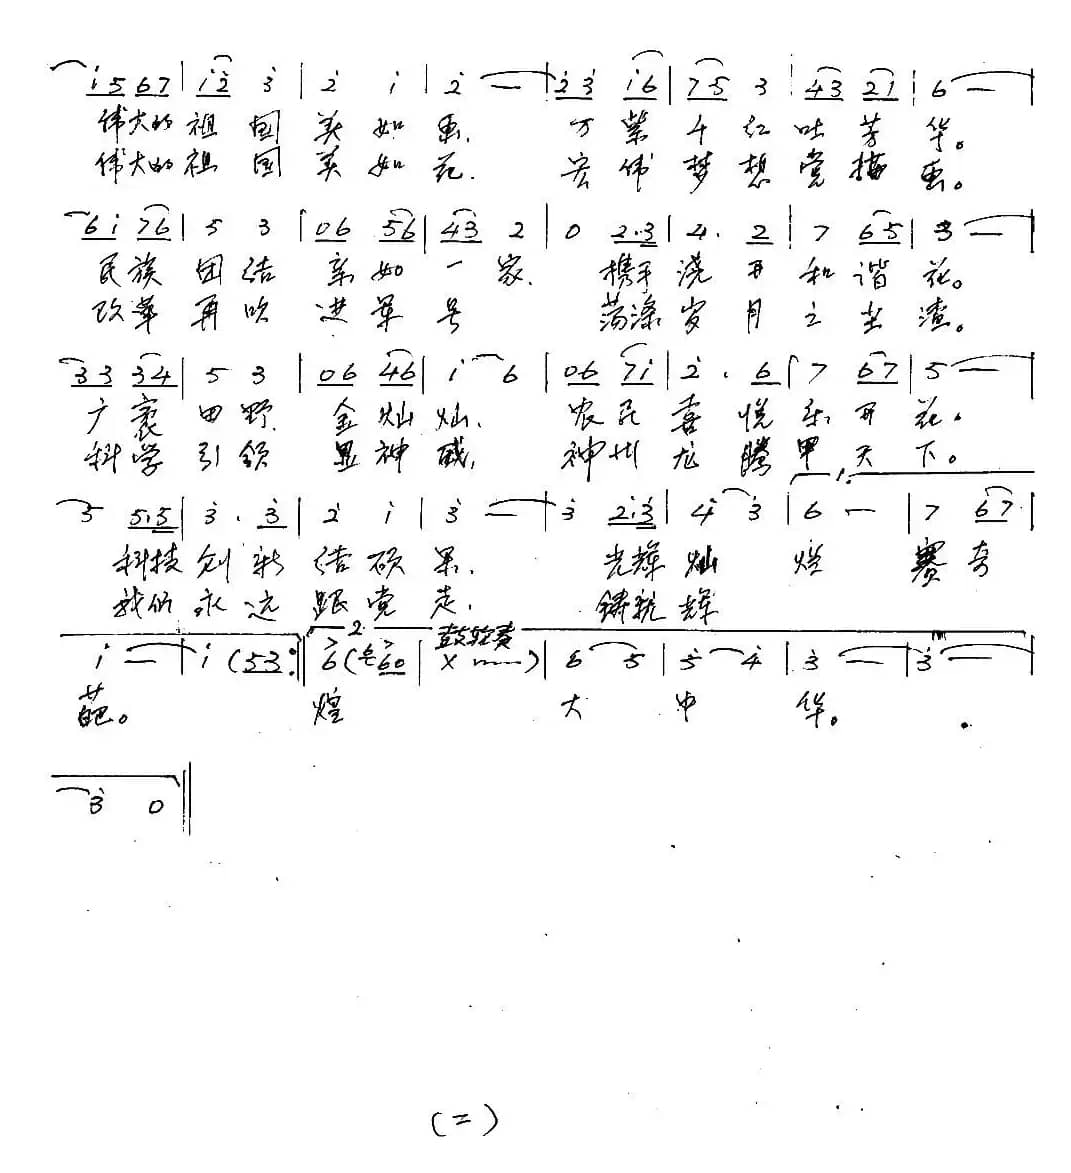 i 5 6 7 | i 2 3 | 2 i | 2 — | 2 3 i 6 | 7 5 3 | 4 3 2 1 | 6 — |
伟大的祖国美如画. 万紫千红吐芳华。
伟大的祖国美如花. 宏伟梦想党描画。
6 i 7 6 | 5 3 | 0 6 5 6 | 4 3 2 | 0 2. 3 | 4. 2 | 7 6 5 | 3 — |
民族团结亲如一家. 携手浇开和谐花。
改革再吹进军号 荡涤岁月之尘渣。
3 3 3 4 | 5 3 | 0 6 4 6 | i 6 | 0 6 7 i | 2. 6 | 7 6 7 | 5 — |
广袤田野金灿灿. 农民喜悦乐开花.
科学引领显神威, 神州龙腾甲天下。
1.
5 5. 5 | 3. 3 | 2 i | 3 — | 3 2. 3 | 4 3 | 6 — | 7 6 7 |
科技创新结硕果. 光辉灿烂赛奇
我们永远跟党走. 铸就辉
2. 鼓轮奏
i — | i ( 5 3 :| 6 ( 6 0 | X ) | 6 5 | 5 4 | 3 — | 3 — |
葩。 煌 大中华。
3 0 ‖
(二)